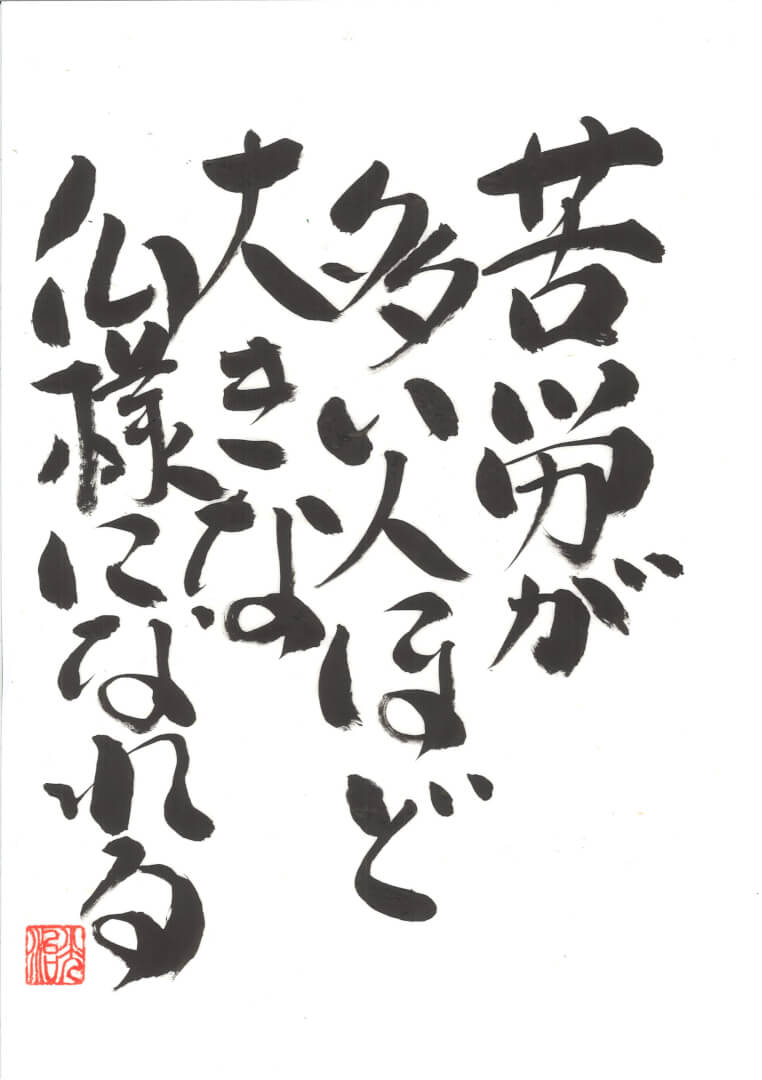 苦労が
多い人ほど
大きな
仏様になれる